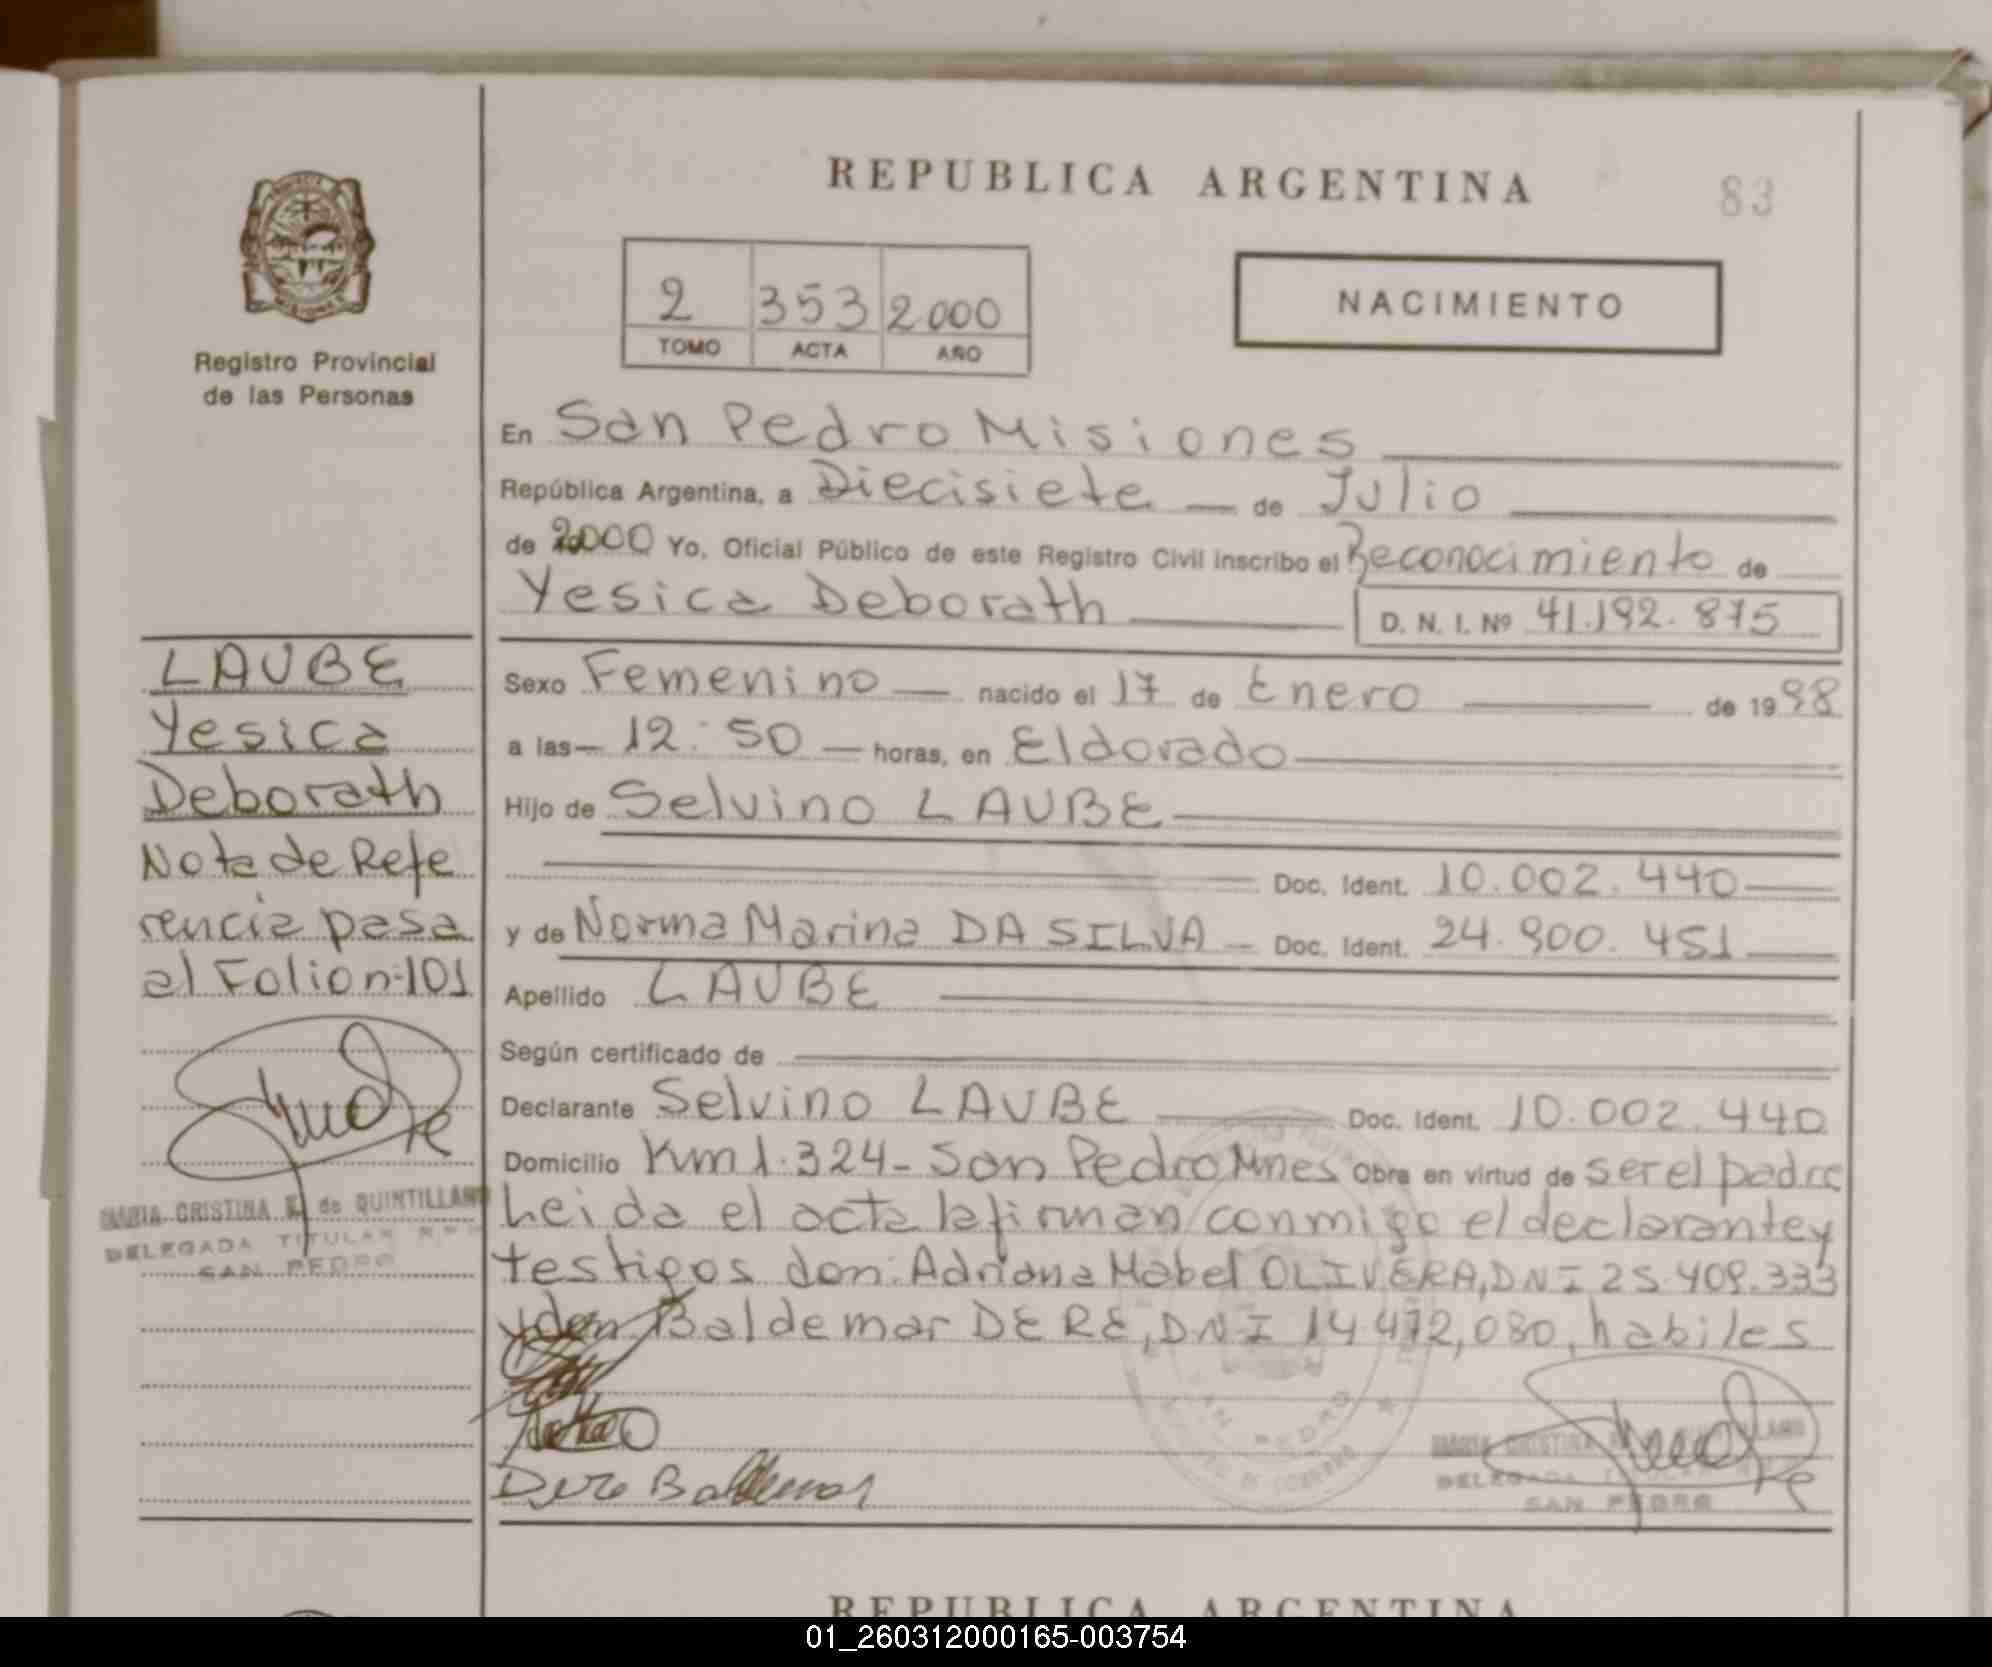 REPUBLICA ARGENTINA
83
2 353 2000
TOMO ACTA AÑO
NACIMIENTO
Registro Provincial
de las Personas
En San Pedro Misiones
República Argentina, a Diecisiete de Julio
de 2000 Yo, Oficial Público de este Registro Civil inscribo el Reconocimiento de
Yesica Deborath D. N. I. Nº 41.192.875
Sexo Femenino nacido el 17 de Enero de 1998
a las 12:50 horas, en Eldorado
Hijo de Selvino LAUBE
Doc. Ident. 10.002.440
y de Norma Marina DA SILVA Doc. Ident. 24.900.451
Apellido LAUBE
Según certificado de
Declarante Selvino LAUBE Doc. Ident. 10.002.440
Domicilio Km 1.324- San Pedro Mnes Obra en virtud de ser el padre
Leida el acta la firman conmigo el declarante y
testigos don: Adriana Mabel OLIVERA, DNI 25.409.333
y don Baldemar DERE, DNI 14.472,080, habiles
Dere Baldemar
MARIA CRISTINA
DELEGADA TITULAR
SAN PEDRO
LAUBE
Yesica
Deborath
Nota de Refe
rencia pasa
al Folio nº 101
MARIA CRISTINA E. de QUINTILLANO
DELEGADA TITULAR R.P.P.
SAN PEDRO
REPUBLICA ARGENTINA
01_260312000165-003754